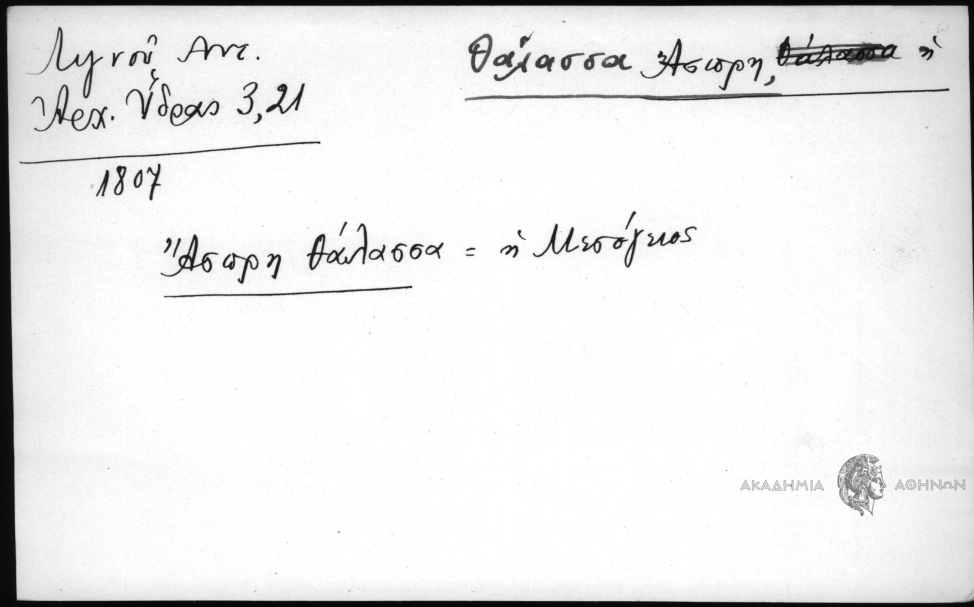 Λιγνοῦ Αντ.
Ἀρχ. Ὕδρας 3,21
1807
θάλασσα Ἄσπρη, θάλασσα ἡ
Ἄσπρη θάλασσα = ἡ Μεσόγειος
ΑΚΑΔΗΜΙΑ ΑΘΗΝΩΝ